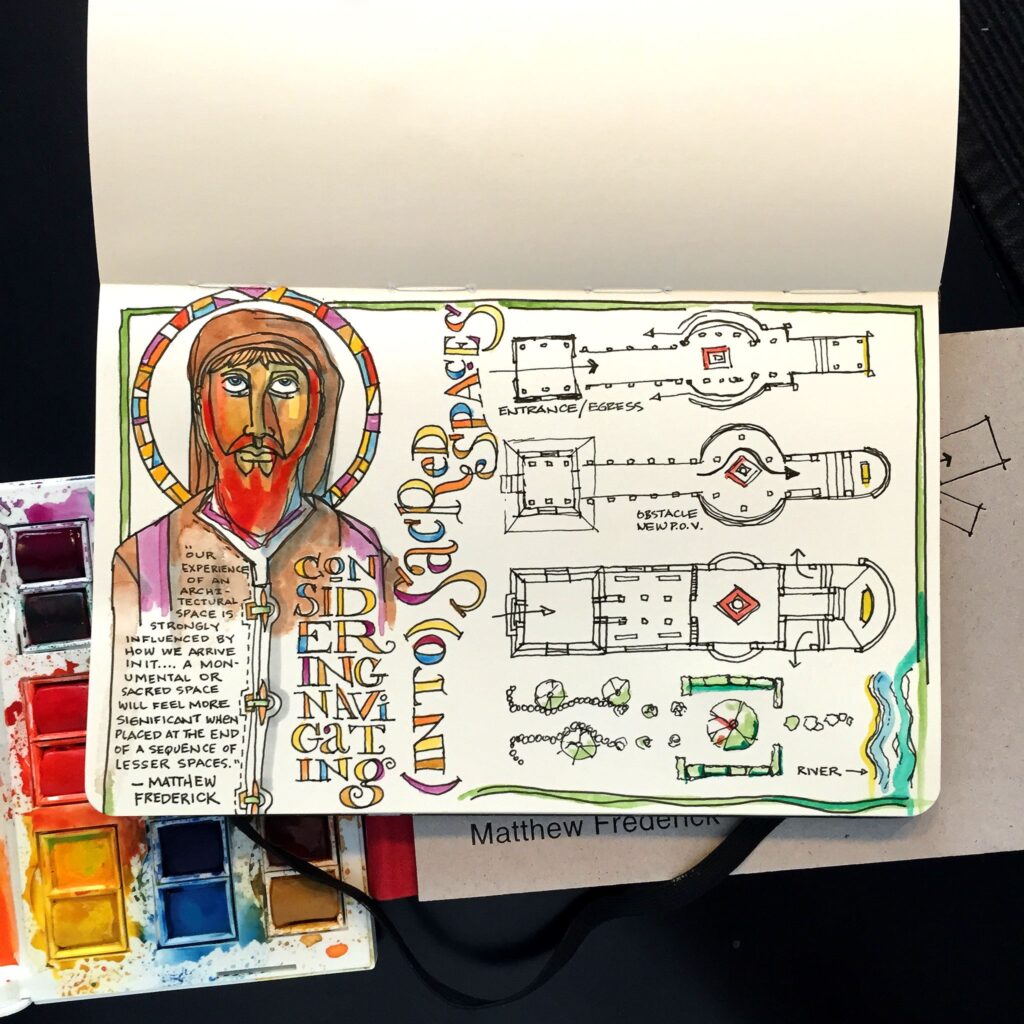 "OUR
EXPERIENCE
OF AN
ARCHI-
TECTURAL
SPACE IS
STRONGLY
INFLUENCED BY
HOW WE ARRIVE
IN IT.... A MON-
UMENTAL OR
SACRED SPACE
WILL FEEL MORE
SIGNIFICANT WHEN
PLACED AT THE END
OF A SEQUENCE OF
LESSER SPACES."
— MATTHEW
FREDERICK
CON
SID
ER
ING
NAVi
GaT
ING
(INTO) SACRED SPACES
ENTRANCE/EGRESS
OBSTACLE
NEW P.O.V.
RIVER
Matthew Frederick